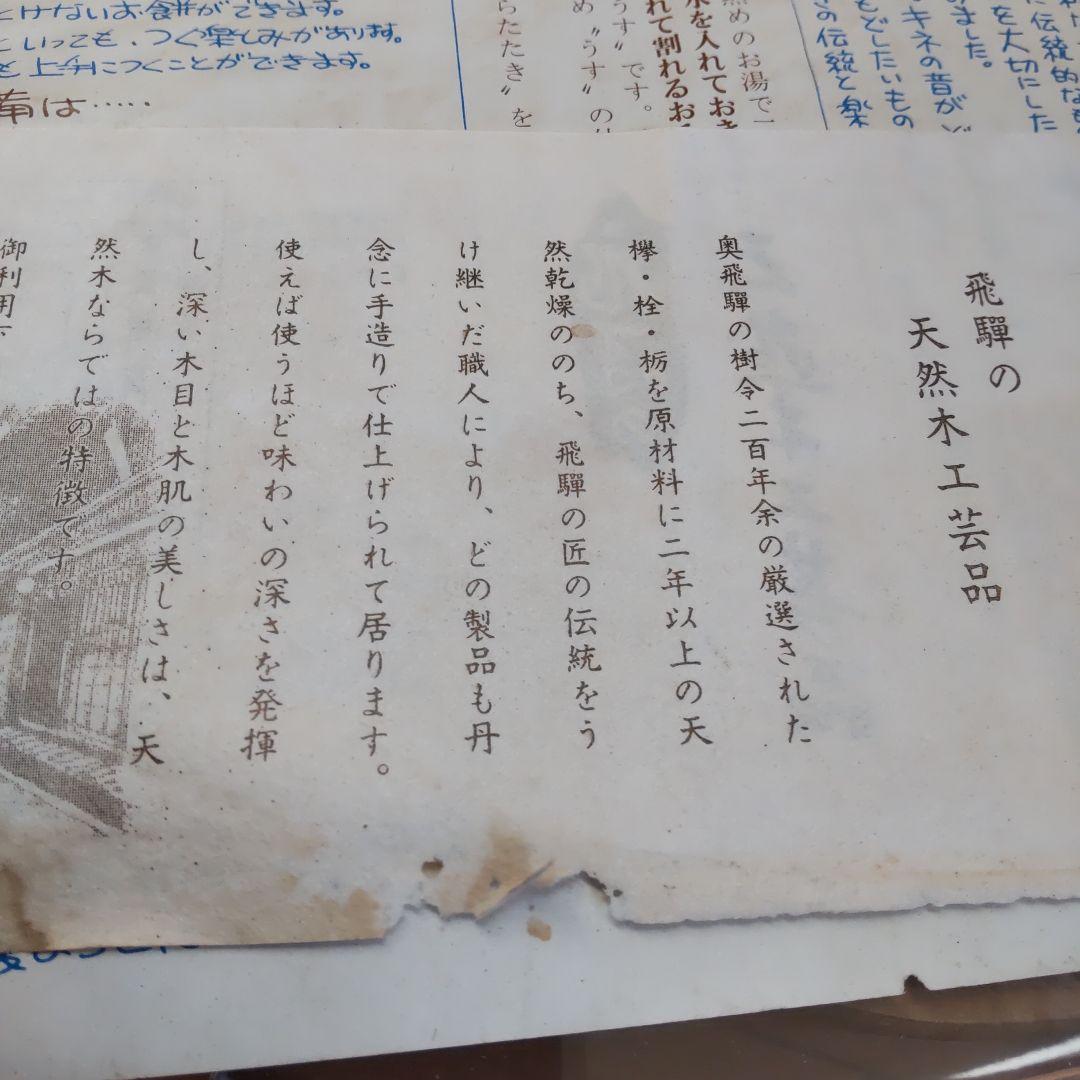 飛驒の
天然木工芸品
奥飛驒の樹令二百年余の厳選された
欅・栓・栃を原材料に二年以上の天
然乾燥ののち、飛驒の匠の伝統をう
け継いだ職人により、どの製品も丹
念に手造りで仕上げられて居ります。
使えば使うほど味わいの深さを発揮
し、深い木目と木肌の美しさは、天
然木ならではの特徴です。
御利用下
伝統的な
を大切にした
みました。
キネの音が
もどしたいもの
の伝統と楽
めのお湯で
水を入れておき
れて割れるお
うす〃です。
め〃うす〃の
らたたき〃を
とけないお餅ができます。
といっても、つく楽しみがあります。
と上手につくことができます。
備は……